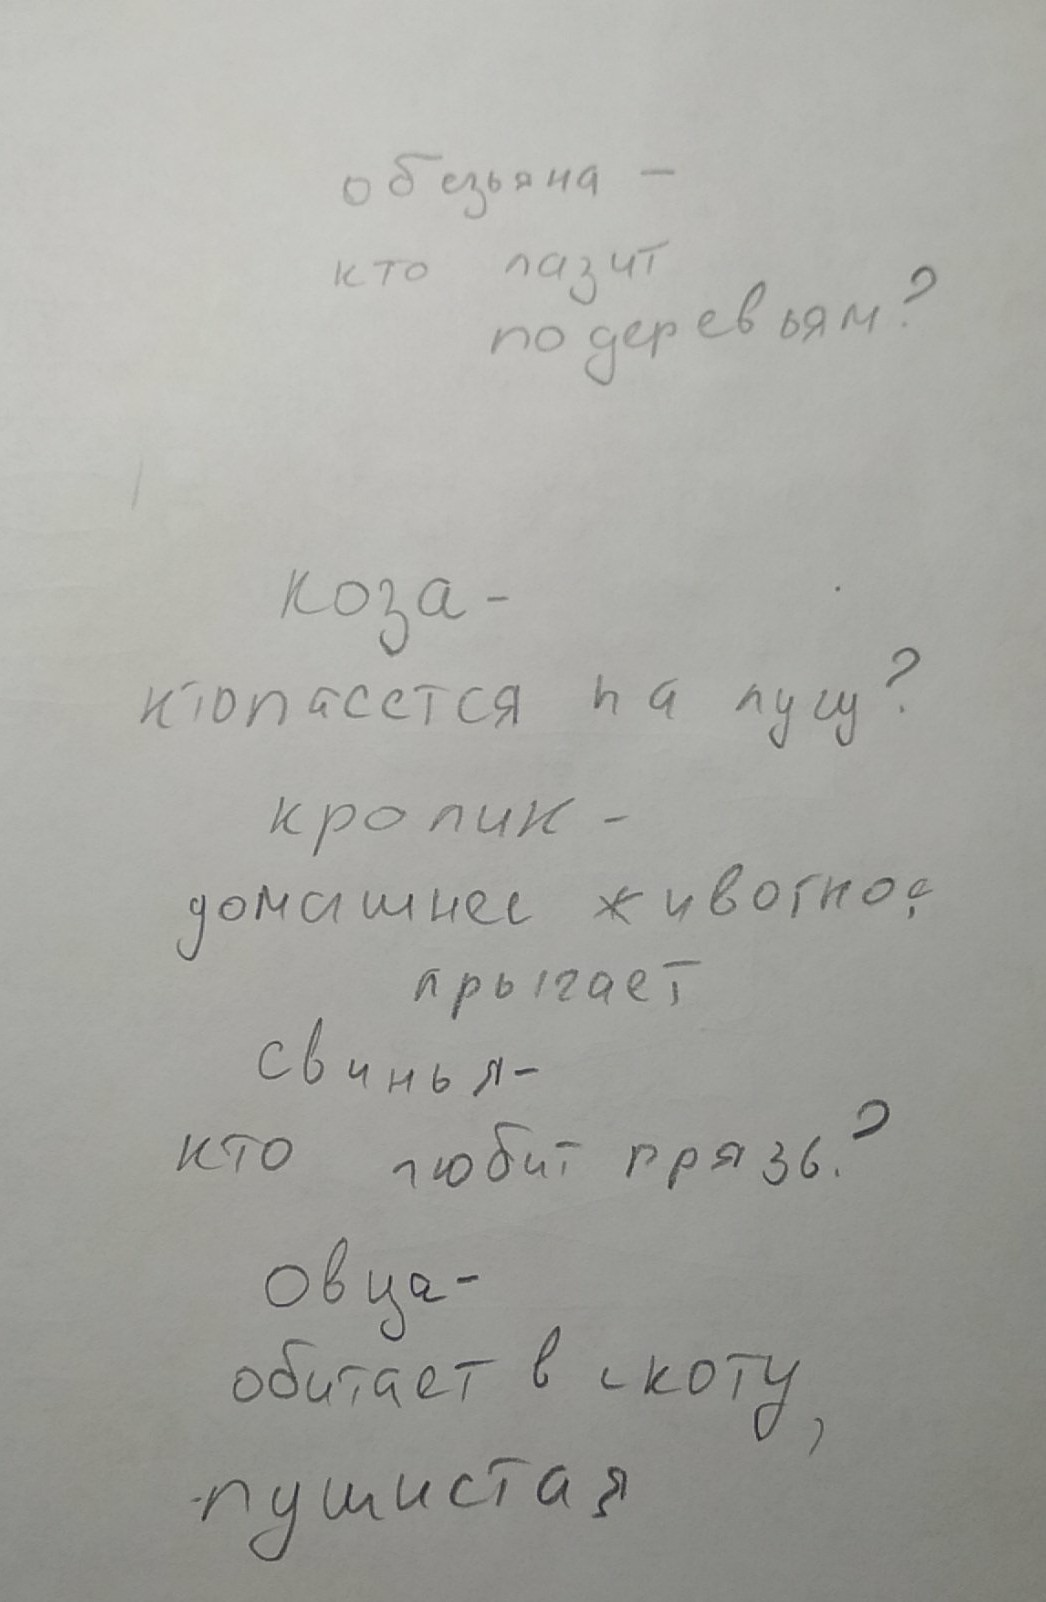 обезьяна -
кто лазит
по деревьям?
коза -
кто пасется на лугу?
кролик -
домашнее животное
прыгает
свинья -
кто любит грязь?
овца -
обитает в скоту,
пушистая